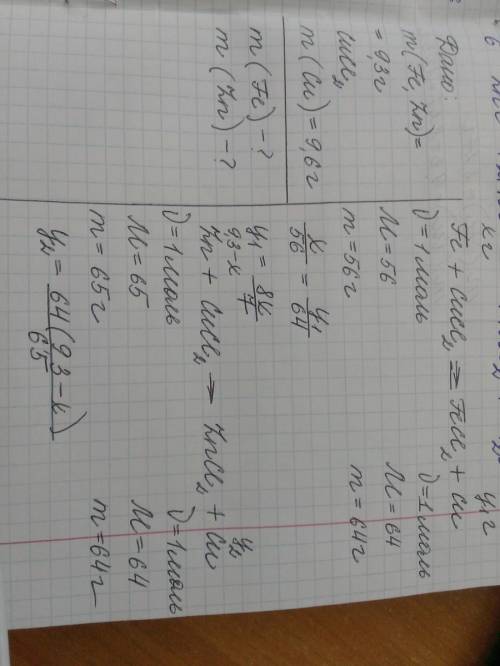 Дано:
m(Fe, Zn)=
= 9,3г
CuCl₂
m(Cu) = 9,6г
m(Fe) - ?
m(Zn) - ?
xг y₁г
Fe + CuCl₂ = FeCl₂ + Cu
ν=1моль ν=1моль
M=56 M=64
m=56г m=64г
x/56 = y₁/64
y₁ = 8x/7
9,3-x y₂
Zn + CuCl₂ → ZnCl₂ + Cu
ν=1моль ν=1моль
M=65 M=64
m=65г m=64г
y₂ = 64(9,3-x)/65